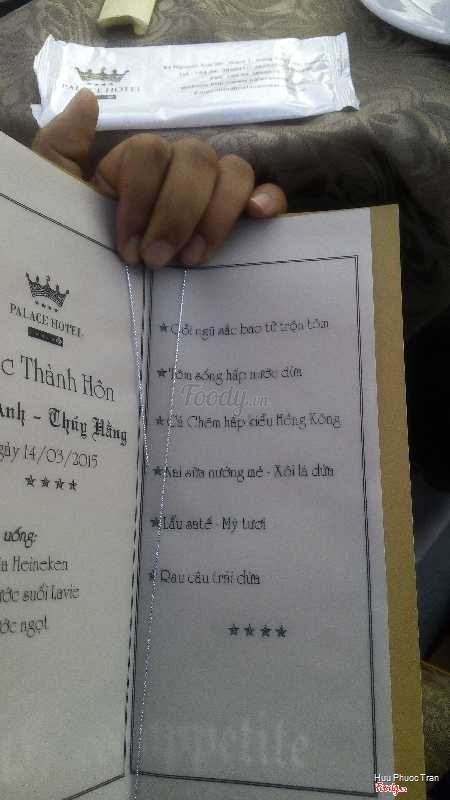 PALACE HOTEL
PALACE HOTEL
c Thành Hôn
Anh - Thúy Hằng
gày 14/03/2015
uống:
ia Heineken
ước suối Lavie
ước ngọt
Gỏi ngũ sắc bao tử trộn tôm
Tôm sống hấp nước dừa
Foody.vn
Cá Chẽm hấp kiểu Hồng Kông
Nai sữa nướng mè - Xôi lá dứa
Lẩu satế - Mỳ tươi
Rau câu trái dừa
appetite
Huu Phuoc Tran
Foody.vn